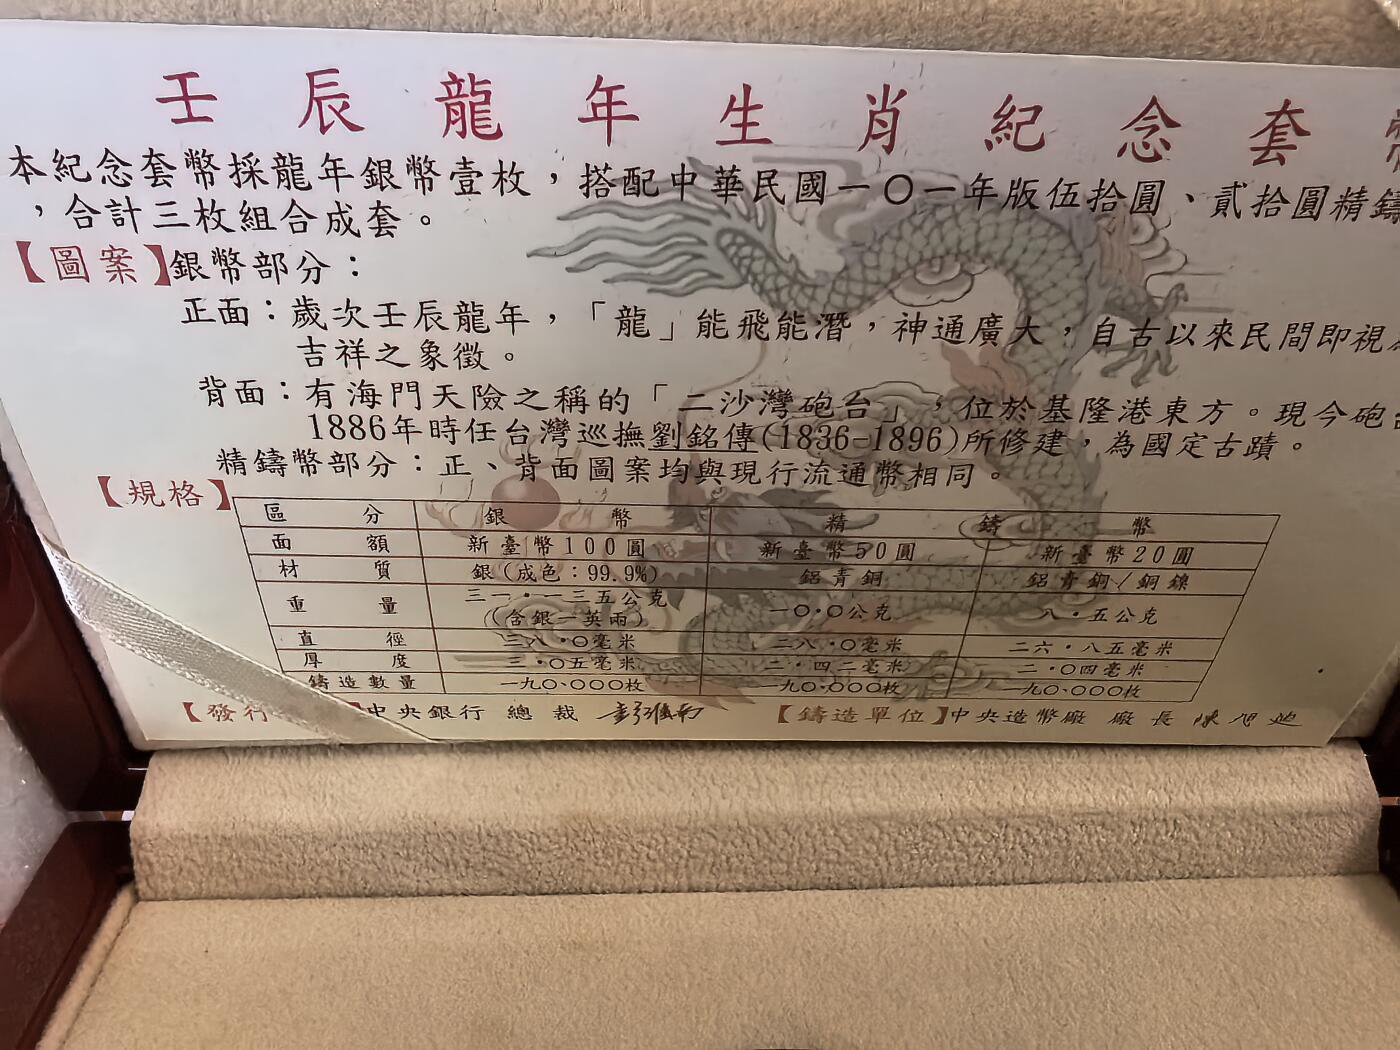 壬辰龍年生肖紀念套
本紀念套幣採龍年銀幣壹枚，搭配中華民國一〇一年版伍拾圓、貳拾圓精鑄
，合計三枚組合成套。
【圖案】銀幣部分：
正面：歲次壬辰龍年，「龍」能飛能潛，神通廣大，自古以來民間即視
吉祥之象徵。
背面：有海門天險之稱的「二沙灣砲台」，位於基隆港東方。現今砲
1886年時任台灣巡撫劉銘傳(1836-1896)所修建，為國定古蹟。
精鑄幣部分：正、背面圖案均與現行流通幣相同。
【規格】
區分 銀幣 精鑄幣
面額 新臺幣100圓 新臺幣50圓 新臺幣20圓
材質 銀(成色：99.9%) 鋁青銅 鋁青銅/銅鎳
重量 三一．一三五公克 一〇．〇公克 八．五公克
(含銀一英兩)
直徑 三八．〇毫米 二八．〇毫米 二六．八五毫米
厚度 三．〇五毫米 二．四二毫米 二．〇四毫米
鑄造數量 一九〇、〇〇〇枚 一九〇、〇〇〇枚 一九〇、〇〇〇枚
【發行 】中央銀行 總裁 彭淮南 【鑄造單位】中央造幣廠 廠長